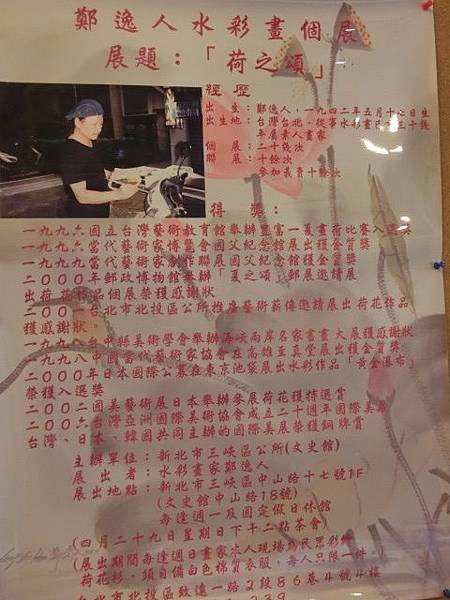 鄭逸人水彩畫個展
展題：「荷之頌」
經歷
出生：鄭逸人，一九四二年五月十七日生
出生地：台灣台北，從事水彩畫已
年屆素人畫家
個展：二十幾次
聯展：十餘次
參加義賣十餘次
得獎：
一九九六國立台灣藝術教育館舉辦豐富一夏畫荷比賽入選獎
一九九六當代藝術家博覽會國父紀念館展出獲金質獎
一九九九當代藝術家創作聯展國父紀念館獲金質獎
二０００年郵政博物館舉辦「夏之頌」郵展邀請展
出荷花作品個展榮獲感謝狀
二００ 台北市北投區公所推廣藝術薪傳邀請展出荷花作品
獲感謝狀
一九九八台中縣美術學會舉辦海峽兩岸名家書畫大展獲感謝狀
一九九八中國當代藝術家協會在高雄至真堂展出獲金質獎
二０００年日本國際公募在東京池袋展出水彩作品「黃金瀑布」
榮獲入選獎
二００二國美藝術展日本舉辦參展荷花獲特選賞
二００六台灣亞洲國際美術協會成立二十週年國際美展
台灣、日本、韓國共同主辦的國際美展榮獲銅牌賞
主辦單位：新北市三峽區公所(文史館)
展出者：水彩畫家鄭逸人
展出地點：新北市三峽區中山路十七號1F
(文史館中山路18號)
每逢週一及國定假日休館
(四月二十九日星期日下午二點茶會)
(展出期間每逢週日畫家本人現場為民眾彩繪
荷花衫，須自備白色棉質衣服，每人只限一件。
台北市北投區致遠一路2段86巷4號4樓
239